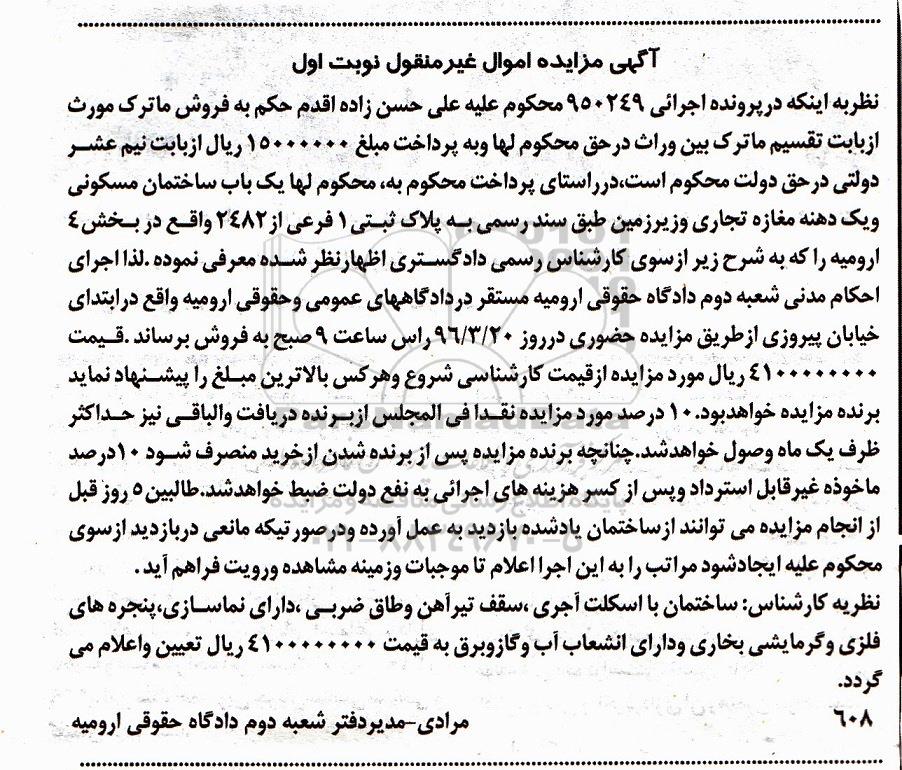 آگهی مزایده اموال غیرمنقول نوبت اول
نظربه اینکه درپرونده اجرائی ۹۵۰۲٤۹ محکوم علیه علی حسن زاده اقدم حکم به فروش ماترک مورث
ازبابت تقسیم ماترک بین وراث درحق محکوم لها وبه پرداخت مبلغ ۱۵۰۰۰۰۰۰ ریال ازبابت نیم عشر
دولتی درحق دولت محکوم است،درراستای پرداخت محکوم به، محکوم لها یک باب ساختمان مسکونی
ویک دهنه مغازه تجاری وزیرزمین طبق سند رسمی به پلاک ثبتی ۱ فرعی از ۲٤۸۲ واقع در بخش ٤
ارومیه را که به شرح زیر ازسوی کارشناس رسمی دادگستری اظهارنظر شده معرفی نموده .لذا اجرای
احکام مدنی شعبه دوم دادگاه حقوقی ارومیه مستقر دردادگاههای عمومی وحقوقی ارومیه واقع درابتدای
خیابان پیروزی ازطریق مزایده حضوری درروز ۹٦/۳/۲۰ راس ساعت ۹ صبح به فروش برساند .قیمت
٤۱۰۰۰۰۰۰۰۰ ریال مورد مزایده ازقیمت کارشناسی شروع وهرکس بالاترین مبلغ را پیشنهاد نماید
برنده مزایده خواهدبود. ۱۰ درصد مورد مزایده نقدا فی المجلس ازبرنده دریافت والباقی نیز حداکثر
ظرف یک ماه وصول خواهدشد.چنانچه برنده مزایده پس از برنده شدن ازخرید منصرف شود ۱۰درصد
ماخوذه غیرقابل استرداد وپس از کسر هزینه های اجرائی به نفع دولت ضبط خواهدشد.طالبین ۵ روز قبل
از انجام مزایده می توانند ازساختمان یادشده بازدید به عمل آورده ودرصورتیکه مانعی دربازدید ازسوی
محکوم علیه ایجادشود مراتب را به این اجرا اعلام تا موجبات وزمینه مشاهده ورویت فراهم آید .
نظریه کارشناس: ساختمان با اسکلت آجری ،سقف تیرآهن وطاق ضربی ،دارای نماسازی،پنجره های
فلزی وگرمایشی بخاری ودارای انشعاب آب وگازوبرق به قیمت ٤۱۰۰۰۰۰۰۰۰ ریال تعیین واعلام می
گردد.
٦۰۸ مرادی-مدیردفتر شعبه دوم دادگاه حقوقی ارومیه